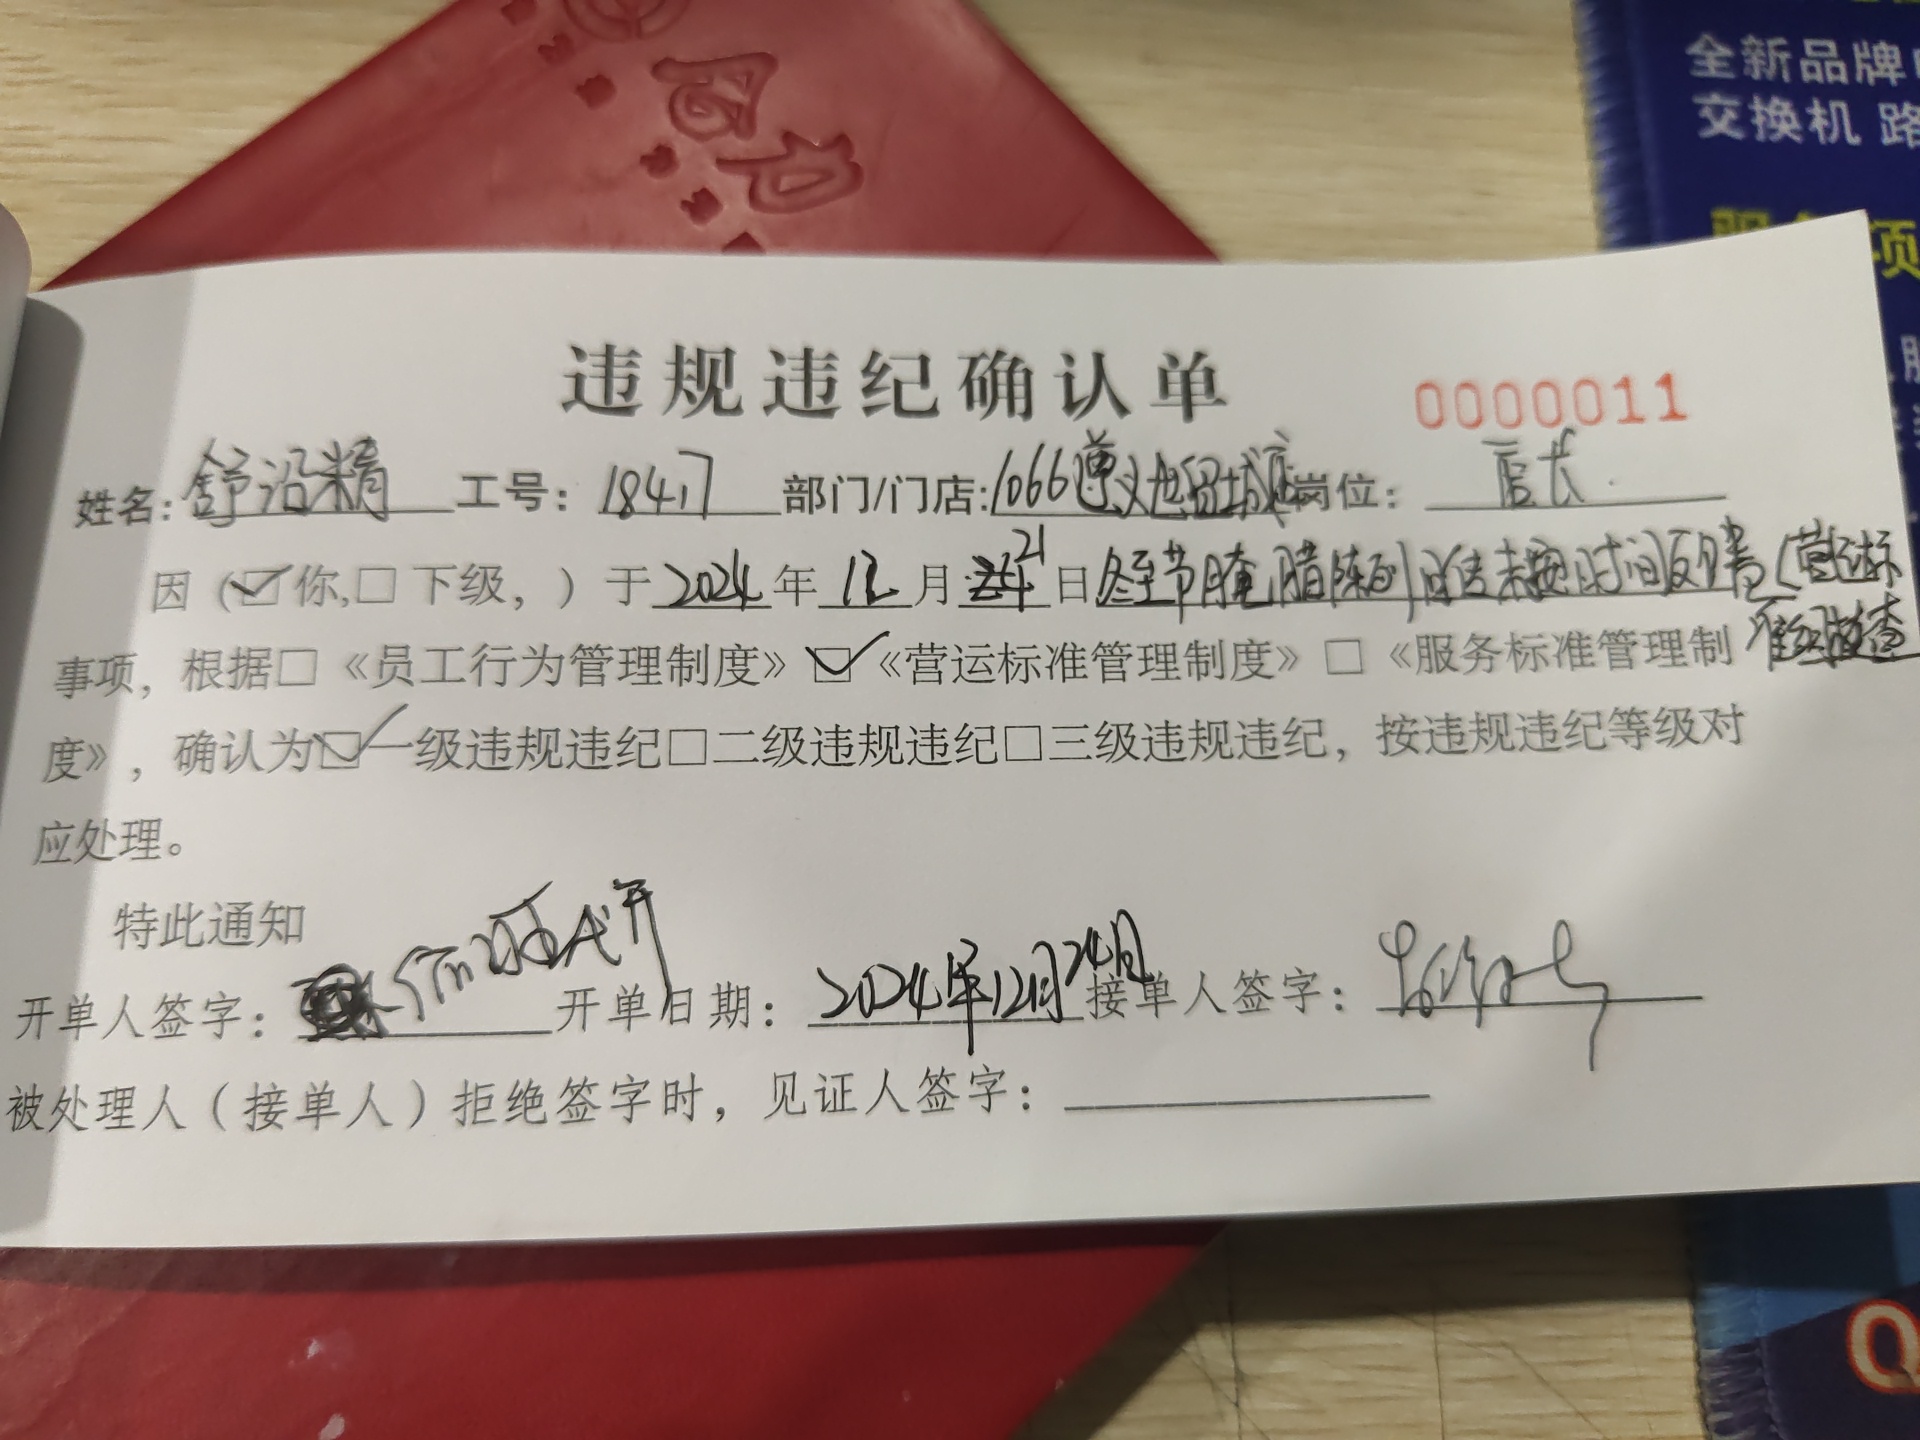 全新品牌
交换机 路
项
违规违纪确认单
0000011
姓名: 舒沿精 工号: 184 部门/门店: 1066遵义 岗位: 店长
因（☑你,☐下级，）于2024年12月21日冬至节腌腊陈列 未按时间反馈（营运标
事项，根据☐《员工行为管理制度》☑《营运标准管理制度》☐《服务标准管理制
度》，确认为☑一级违规违纪☐二级违规违纪☐三级违规违纪，按违规违纪等级对
应处理。
特此通知
开单人签字: 代开 开单日期: 2024年12月24日 接单人签字:
被处理人（接单人）拒绝签字时，见证人签字:
Q